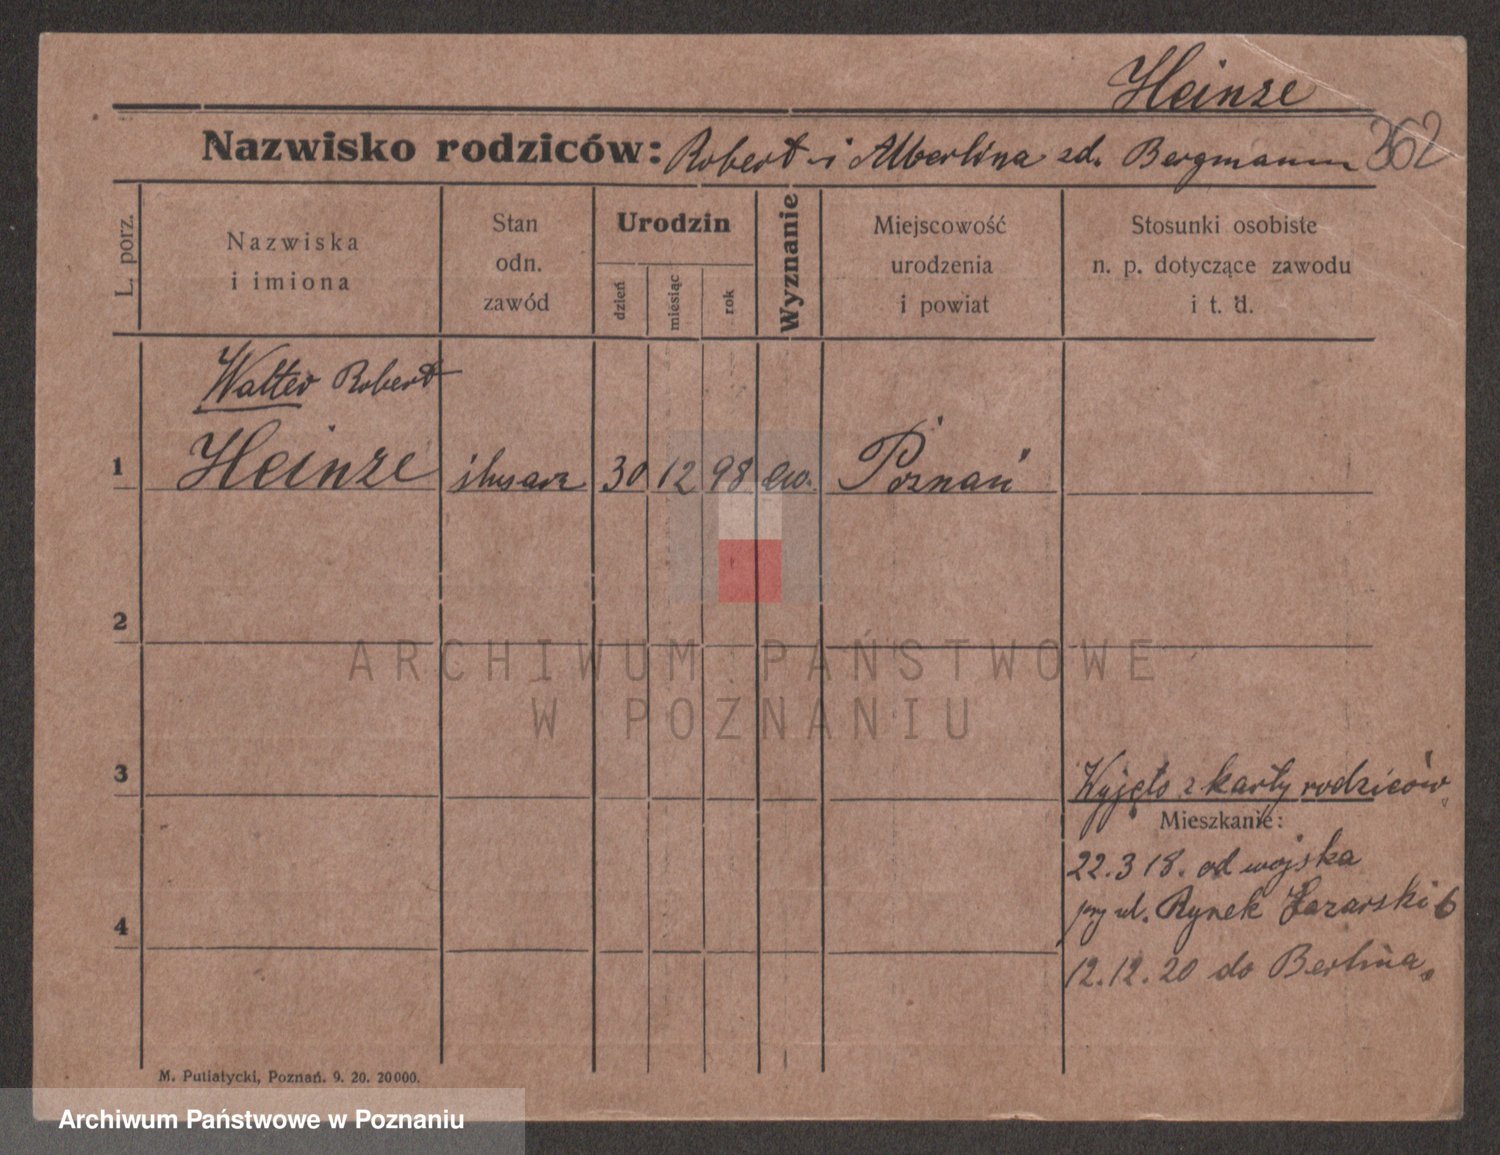 Heinze
Nazwisko rodziców: Robert i Albertina zd. Bergmann 362
L. porz.
Nazwiska
i imiona
Stan
odn.
zawód
Urodzin
dzień
miesiąc
rok
Wyznanie
Miejscowość
urodzenia
i powiat
Stosunki osobiste
n. p. dotyczące zawodu
i t. d.
Walter Robert
1 Heinze ślusarz 30 12 98 ew. Poznań
2
ARCHIWUM PAŃSTWOWE
W POZNANIU
3
Wyjęto z karty rodziców
Mieszkanie:
22.3 18. od wojska
przy ul. Rynek Łazarski 6
4
12.12.20 do Berlina.
M. Putiatycki, Poznań. 9. 20. 20000.
Archiwum Państwowe w Poznaniu